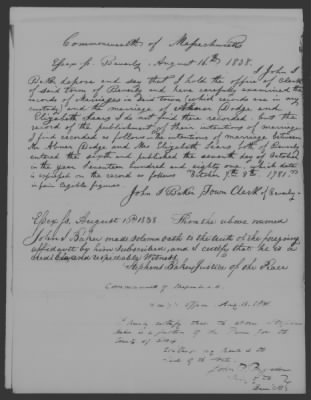 Commonwealth of Massachusetts
Essex ss. Beverly August 16th 1838.
I John I
Baker depose and say that I hold the office of Clerk
of said town of Beverly and have carefully examined the
records of Marriages in said town (which records are in my
custody) and the marriage of Abner Dodge and
Elizabeth Sears I do not find there recorded. but the
record of the publishment of their intentions of marriage
I find recorded as follows - the intentions of marriage between
Mr Abner Dodge and Mrs Elizabeth Sears both of Beverly
entered the sixth and published the seventh day of October
in the year Seventeen hundred and eighty one, which date
is expressed on the record as follows "October 7th 1781"
in fair legible figures.
John I Baker Town Clerk of Beverly
Essex ss. August 1838 Then the above named
John I. Baker made solemn oath to the truth of the foregoing
affidavit by him subscribed, and I certify that he is a
credible and respectable Witness
Stephens Baker Justice of the Peace
Commonwealth of
Office Aug. 1838
I hereby certify that the above
Baker is a Justice of the Peace for the
County of Essex
In testimony
Seal of the
John P. Bigelow